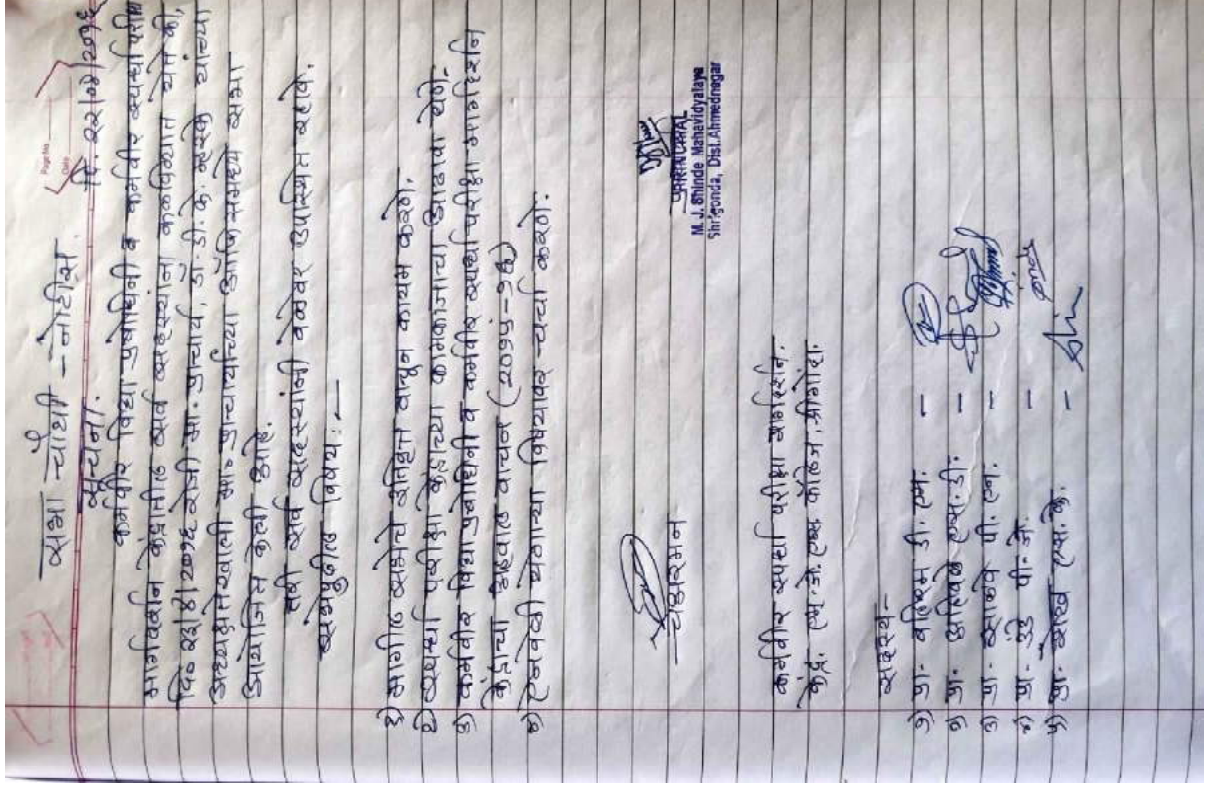 सभा चौथी - नोटीस.
Page No.
Date
सूचना.
दि. २२/०४/२०१६
कर्मवीर विद्या प्रबोधिनी व कर्मवीर स्पर्धा परीक्षा
मार्गदर्शन केंद्रातील सर्व सदस्यांना कळविण्यात येते की,
दि. २३/४/२०१६ रोजी मा. प्राचार्य, डॉ. डी. के. म्हस्के यांच्या
अध्यक्षतेखाली मा. प्राचार्यांच्या ऑफिसमध्ये सभा
आयोजित केली आहे.
तरी सर्व सदस्यांनी वेळेवर उपस्थित रहावे.
सभेपुढील विषय :-
१) मागील सभेचे इतिवृत्त वाचून कायम करणे.
२) स्पर्धा परीक्षा केंद्राच्या कामकाजाचा आढावा घेणे.
३) कर्मवीर विद्या प्रबोधिनी व कर्मवीर स्पर्धा परीक्षा मार्गदर्शन
केंद्राचा अहवाल वाचन (२०१५-१६)
४) ऐनवेळी येणाऱ्या विषयावर चर्चा करणे.
चेअरमन
PRINCIPAL
M. J. Shinde Mahavidyalaya
Shrigonda, Dist.Ahmednagar
कर्मवीर स्पर्धा परीक्षा मार्गदर्शन.
केंद्र. एम. जे. एस. कॉलेज, श्रीगोंदा.
सदस्य-
१) प्रा. डी. एम. -
२) प्रा. एस. डी. -
३) प्रा. पी. एन. -
४) प्रा. उंडे पी. जे. -
५) प्रा. शेख एम. के. -